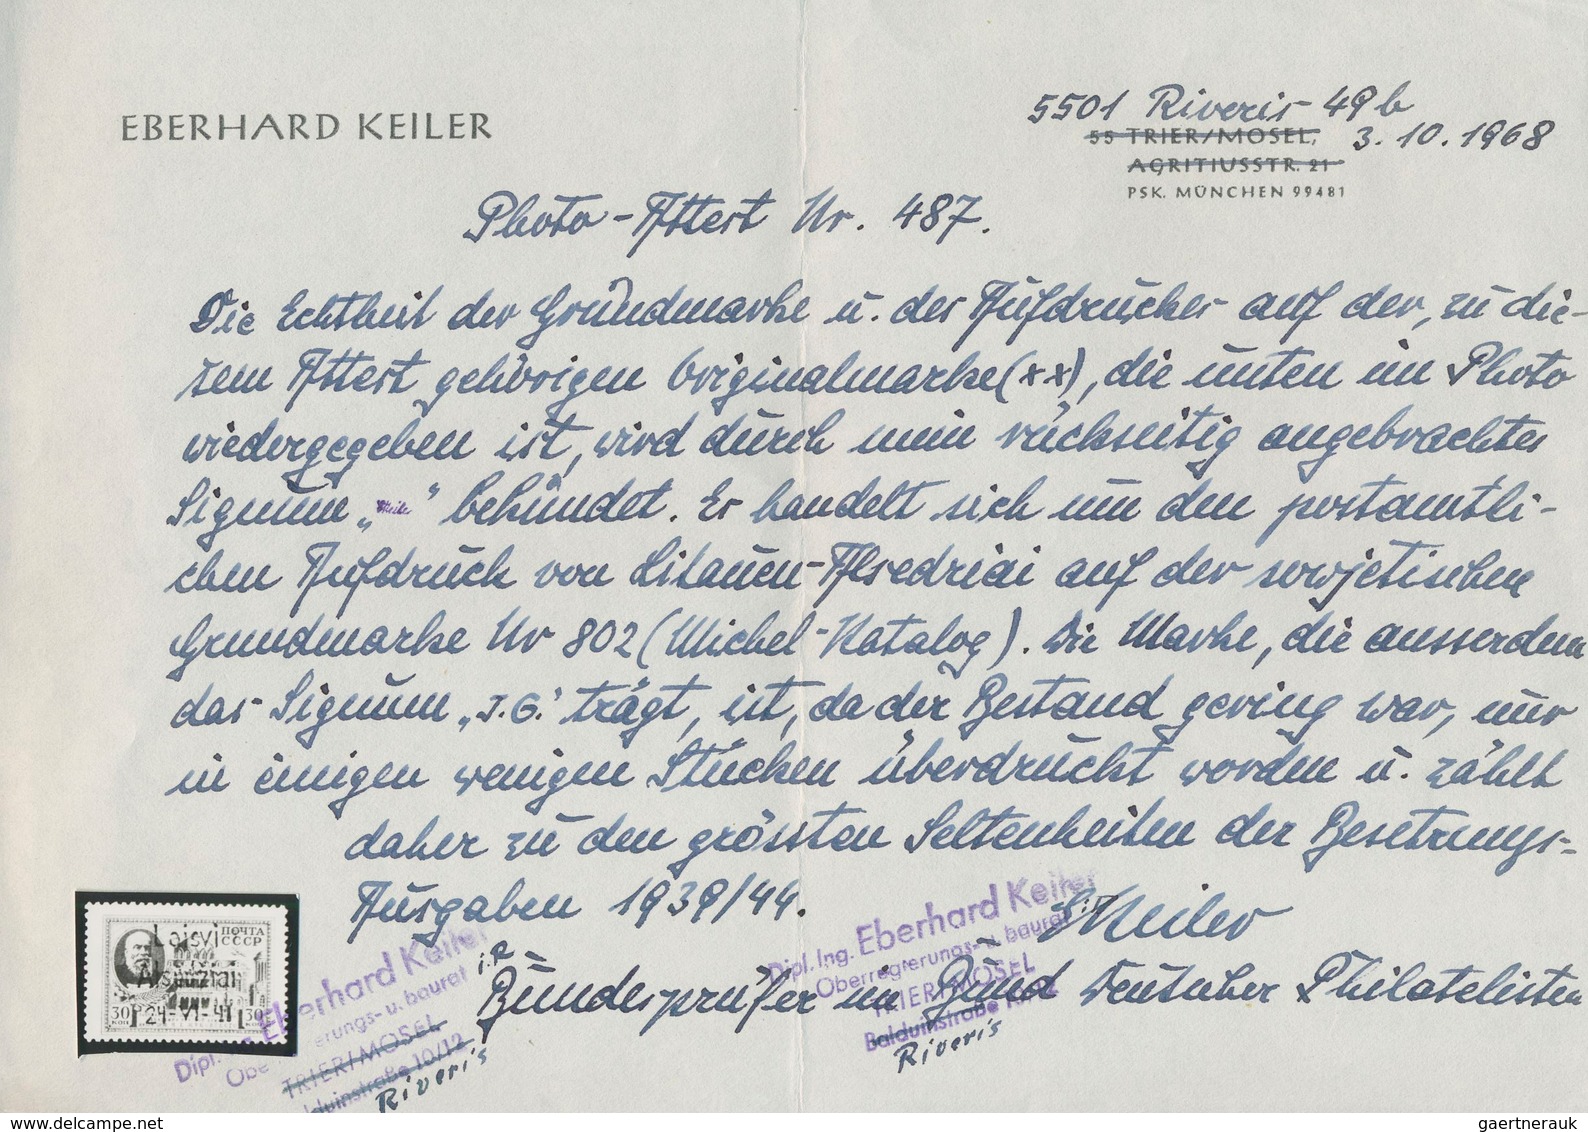 EBERHARD KEILER
5501 Riveris 49b
55 TRIER/MOSEL, 3.10.1968
AGRITIUSSTR. 21
PSK. MÜNCHEN 99481
Photo-Attest Nr. 487.
Die Echtheit der Grundmarke u. des Aufdruckes auf der, zu die-
sem Attest gehörigen Originalmarke (xx), die unten im Photo
wiedergegeben ist, wird durch mein rückseitig angebrachtes
Signum „Keiler“ bekundet. Es handelt sich um den postamtli-
chen Aufdruck von Litauen-Alsedziai auf der sowjetischen
Grundmarke Nr 802 (Michel-Katalog). Die Marke, die ausserdem
das Signum „J.G.' trägt, ist, da der Bestand gering war, nur
in einigen wenigen Stücken überdruckt worden u. zählt
daher zu den grössten Seltenheiten der Besetzungs-
Ausgaben 1939/44.
EKeiler
Bundesprüfer im Bund Deutscher Philatelisten
Laisvi
ПОЧТА
СССР
Alsedžiai
24-VI-41
30
КОП
30
Dipl. Ing. Eberhard Keiler
Oberregierungs- u. baurat i.R
TRIER/MOSEL
Balduinstraße 10/12
Riveris
Dipl. Eberhard Keiler
Oberregierungs- u. baurat i.R
TRIER/MOSEL
Balduinstraße 10/12
Riveris
www.delcampe.net
gaertnerauk